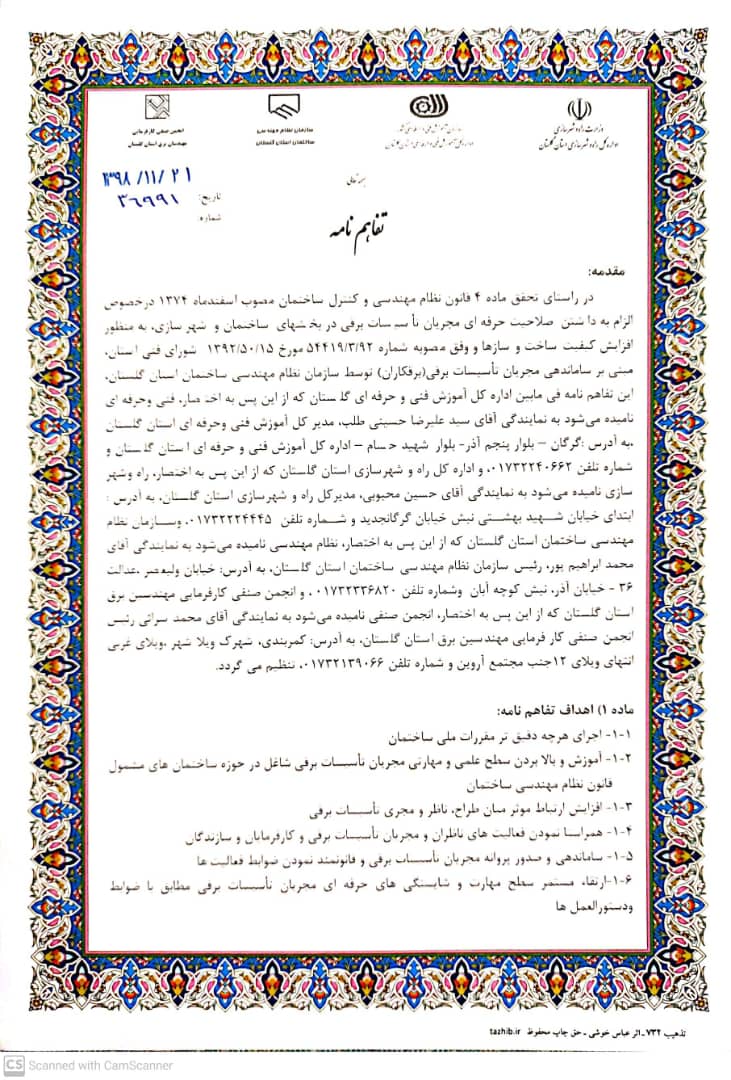 وزارت راه و شهرسازی
اداره کل راه و شهرسازی استان گلستان
سازمان آموزش فنی و حرفه‌ای کشور
اداره کل آموزش فنی و حرفه‌ای استان گلستان
سازمان نظام مهندسی
ساختمان استان گلستان
انجمن صنفی کارفرمایی
مهندسان برق استان گلستان
بسمه تعالی
تاریخ: ۱۳۹۸/۱۱/۲۱
شماره: ۳۶۹۹۱
تفاهم نامه
مقدمه:
در راستای تحقق ماده ۴ قانون نظام مهندسی و کنترل ساختمان مصوب اسفندماه ۱۳۷۴ درخصوص
الزام به داشتن صلاحیت حرفه ای مجریان تأسیسات برقی در بخشهای ساختمان و شهرسازی، به منظور
افزایش کیفیت ساخت و سازها و وفق مصوبه شماره ۵۴۴۱۹/۳/۹۲ مورخ ۱۳۹۲/۵۰/۱۵ شورای فنی استان،
مبنی بر ساماندهی مجریان تأسیسات برقی(برقکاران) توسط سازمان نظام مهندسی ساختمان استان گلستان،
این تفاهم نامه فی مابین اداره کل آموزش فنی و حرفه ای گلستان که از این پس به اختصار، فنی وحرفه ای
نامیده می‌شود به نمایندگی آقای سید علیرضا حسینی طلب، مدیر کل آموزش فنی وحرفه ای استان گلستان
،به آدرس :گرگان – بلوار پنجم آذر- بلوار شهید حسام – اداره کل آموزش فنی و حرفه ای استان گلستان و
شماره تلفن ۰۱۷۳۲۲۴۰۶۶۲، و اداره کل راه و شهرسازی استان گلستان که از این پس به اختصار، راه وشهر
سازی نامیده می‌شود به نمایندگی آقای حسین محبوبی، مدیرکل راه و شهرسازی استان گلستان، به آدرس :
ابتدای خیابان شهید بهشتی نبش خیابان گرگانجدید و شماره تلفن ۰۱۷۳۲۲۲۴۴۴۵، وسازمان نظام
مهندسی ساختمان استان گلستان که از این پس به اختصار، نظام مهندسی نامیده می‌شود به نمایندگی آقای
محمد ابراهیم پور، رئیس سازمان نظام مهندسی ساختمان استان گلستان، به آدرس: خیابان ولیعصر ،عدالت
۳۶ - خیابان آذر، نبش کوچه آبان وشماره تلفن ۰۱۷۳۲۳۳۶۸۲۰ ، و انجمن صنفی کارفرمایی مهندسین برق
استان گلستان که از این پس به اختصار، انجمن صنفی نامیده می‌شود به نمایندگی آقای محمد سرائی رئیس
انجمن صنفی کار فرمایی مهندسین برق استان گلستان، به آدرس: کمربندی، شهرک ویلا شهر ،ویلای غربی
انتهای ویلای ۱۲جنب مجتمع آروین و شماره تلفن ۰۱۷۳۲۱۳۹۰۶۶، تنظیم می گردد.
ماده ۱) اهداف تفاهم نامه:
۱-۱- اجرای هرچه دقیق تر مقررات ملی ساختمان
۱-۲- آموزش و بالا بردن سطح علمی و مهارتی مجریان تأسیسات برقی شاغل در حوزه ساختمان های مشمول
قانون نظام مهندسی ساختمان
۱-۳- افزایش ارتباط موثر میان طراح، ناظر و مجری تأسیسات برقی
۱-۴- همراسا نمودن فعالیت های ناظران و مجریان تأسیسات برقی و کارفرمایان و سازندگان
۱-۵- ساماندهی و صدور پروانه مجریان تأسیسات برقی و قانونمند نمودن ضوابط فعالیت ها
۱-۶-ارتقاء مستمر سطح مهارت و شایستگی های حرفه ای مجریان تأسیسات برقی مطابق با ضوابط
ودستورالعمل ها
تذهیب ۷۳۲ـ اثر عباس خوشی ـ حق چاپ محفوظ tazhib.ir
CS Scanned with CamScanner